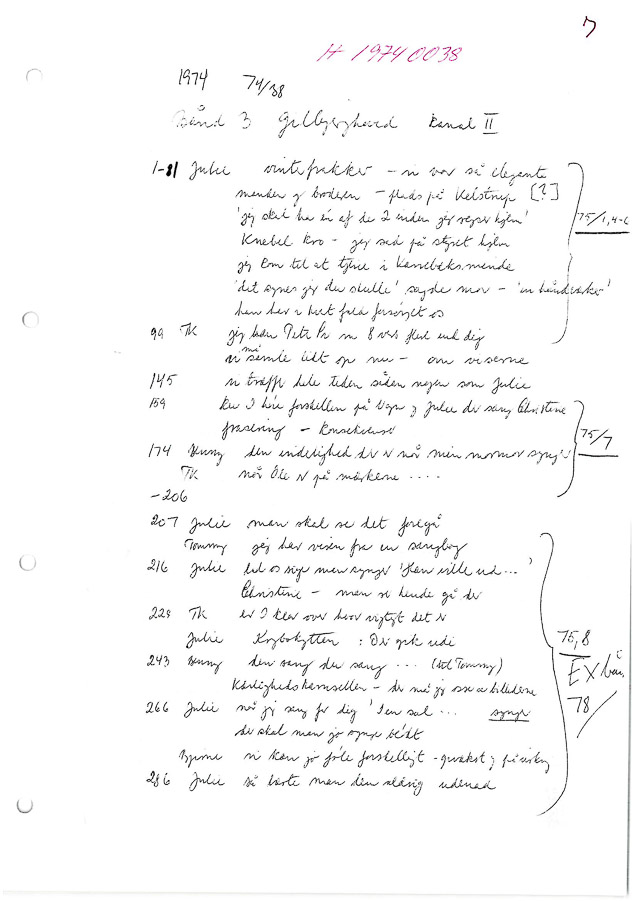 7
H 19740038
1974 74/38
Bånd 3 Gilbjerghoved Kanal II
1-81 Julie vinterfrakker - vi var så elegante
manden og broderen - plads på Kelstrup [?]
'jeg skal ha én af de 2 inden jeg rejser hjem'
Knebel Kro - jeg sad på styret hjem
jeg kom til at tjene i Karrebæksminde
'det synes jeg du skulle' sagde mor - 'en håndværker'
han har i hvert fald forsørget os
75/1,4-6
99 TK jeg kan Petr Pr m 8 vers flere end dig
vi må samle lidt op nu - om viserne
145 vi træffer hele tiden siden nogen som Julie
159 kan I høre forskellen på Vagn og Julie der sang Christine
frasering - konsekvenser
75/7
174 Benny den inderlighed der er når min mormor synger
TK når Ole er på mærkerne ....
-206
207 Julie man skal se det foregå
Tommy jeg har visen fra en sangbog
216 Julie lad os sige man synger 'Han ville ud...'
Christine - man se hende gå der
229 TK er I klar over hvor vigtigt det er
Julie Krybskytten : Der gik
243 Benny den sang du sang ... (til Tommy)
Kærlighedskarrusellen - der må jeg osse se billederne
266 Julie når jeg sang for dig 'I en sal ... synge
det skal man jo synge blødt
Bjarne vi kan jo føle forskelligt -
286 Julie så lærte man den aldrig udenad
75,8
EX
78